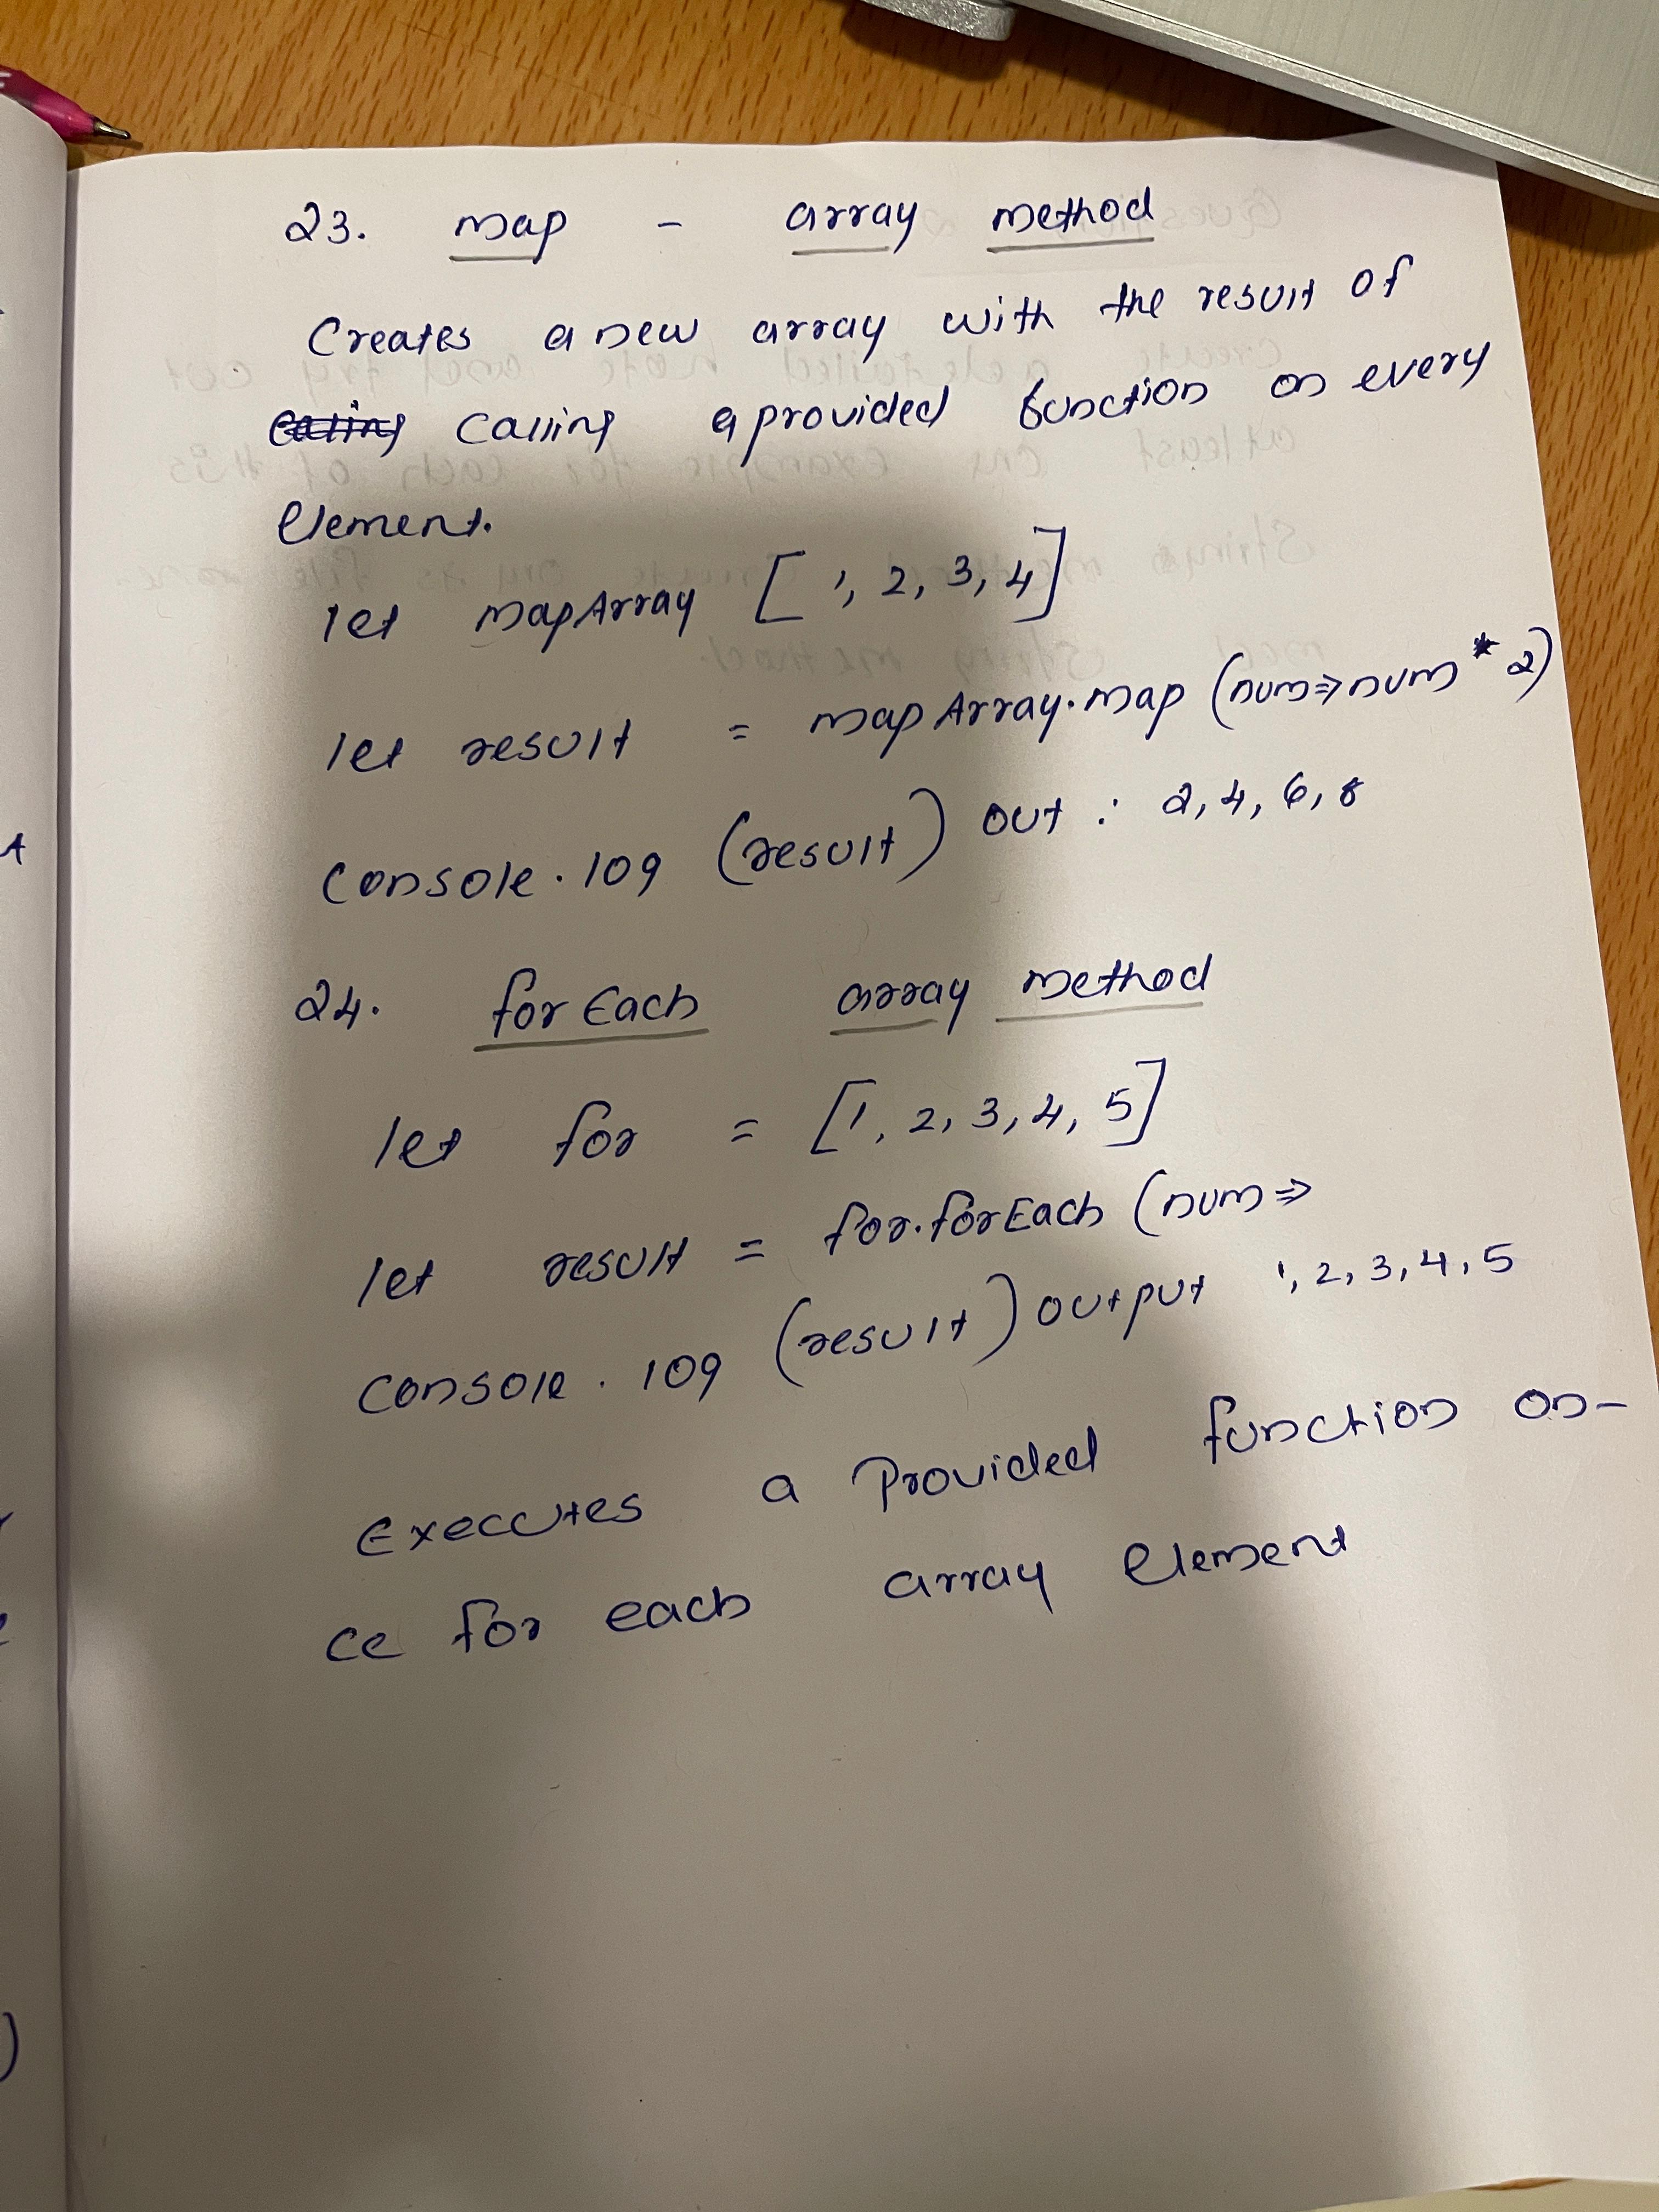 23. map - array method
Creates a new array with the result of
calling a provided function on every
element.
let mapArray [1, 2, 3, 4]
let result = mapArray.map (num=>num * 2)
console.log (result) out : 2, 4, 6, 8
24. forEach array method
let for = [1, 2, 3, 4, 5]
let result = for.forEach (num=>
console.log (result) output 1, 2, 3, 4, 5
Executes a Provided function on-
ce for each array element